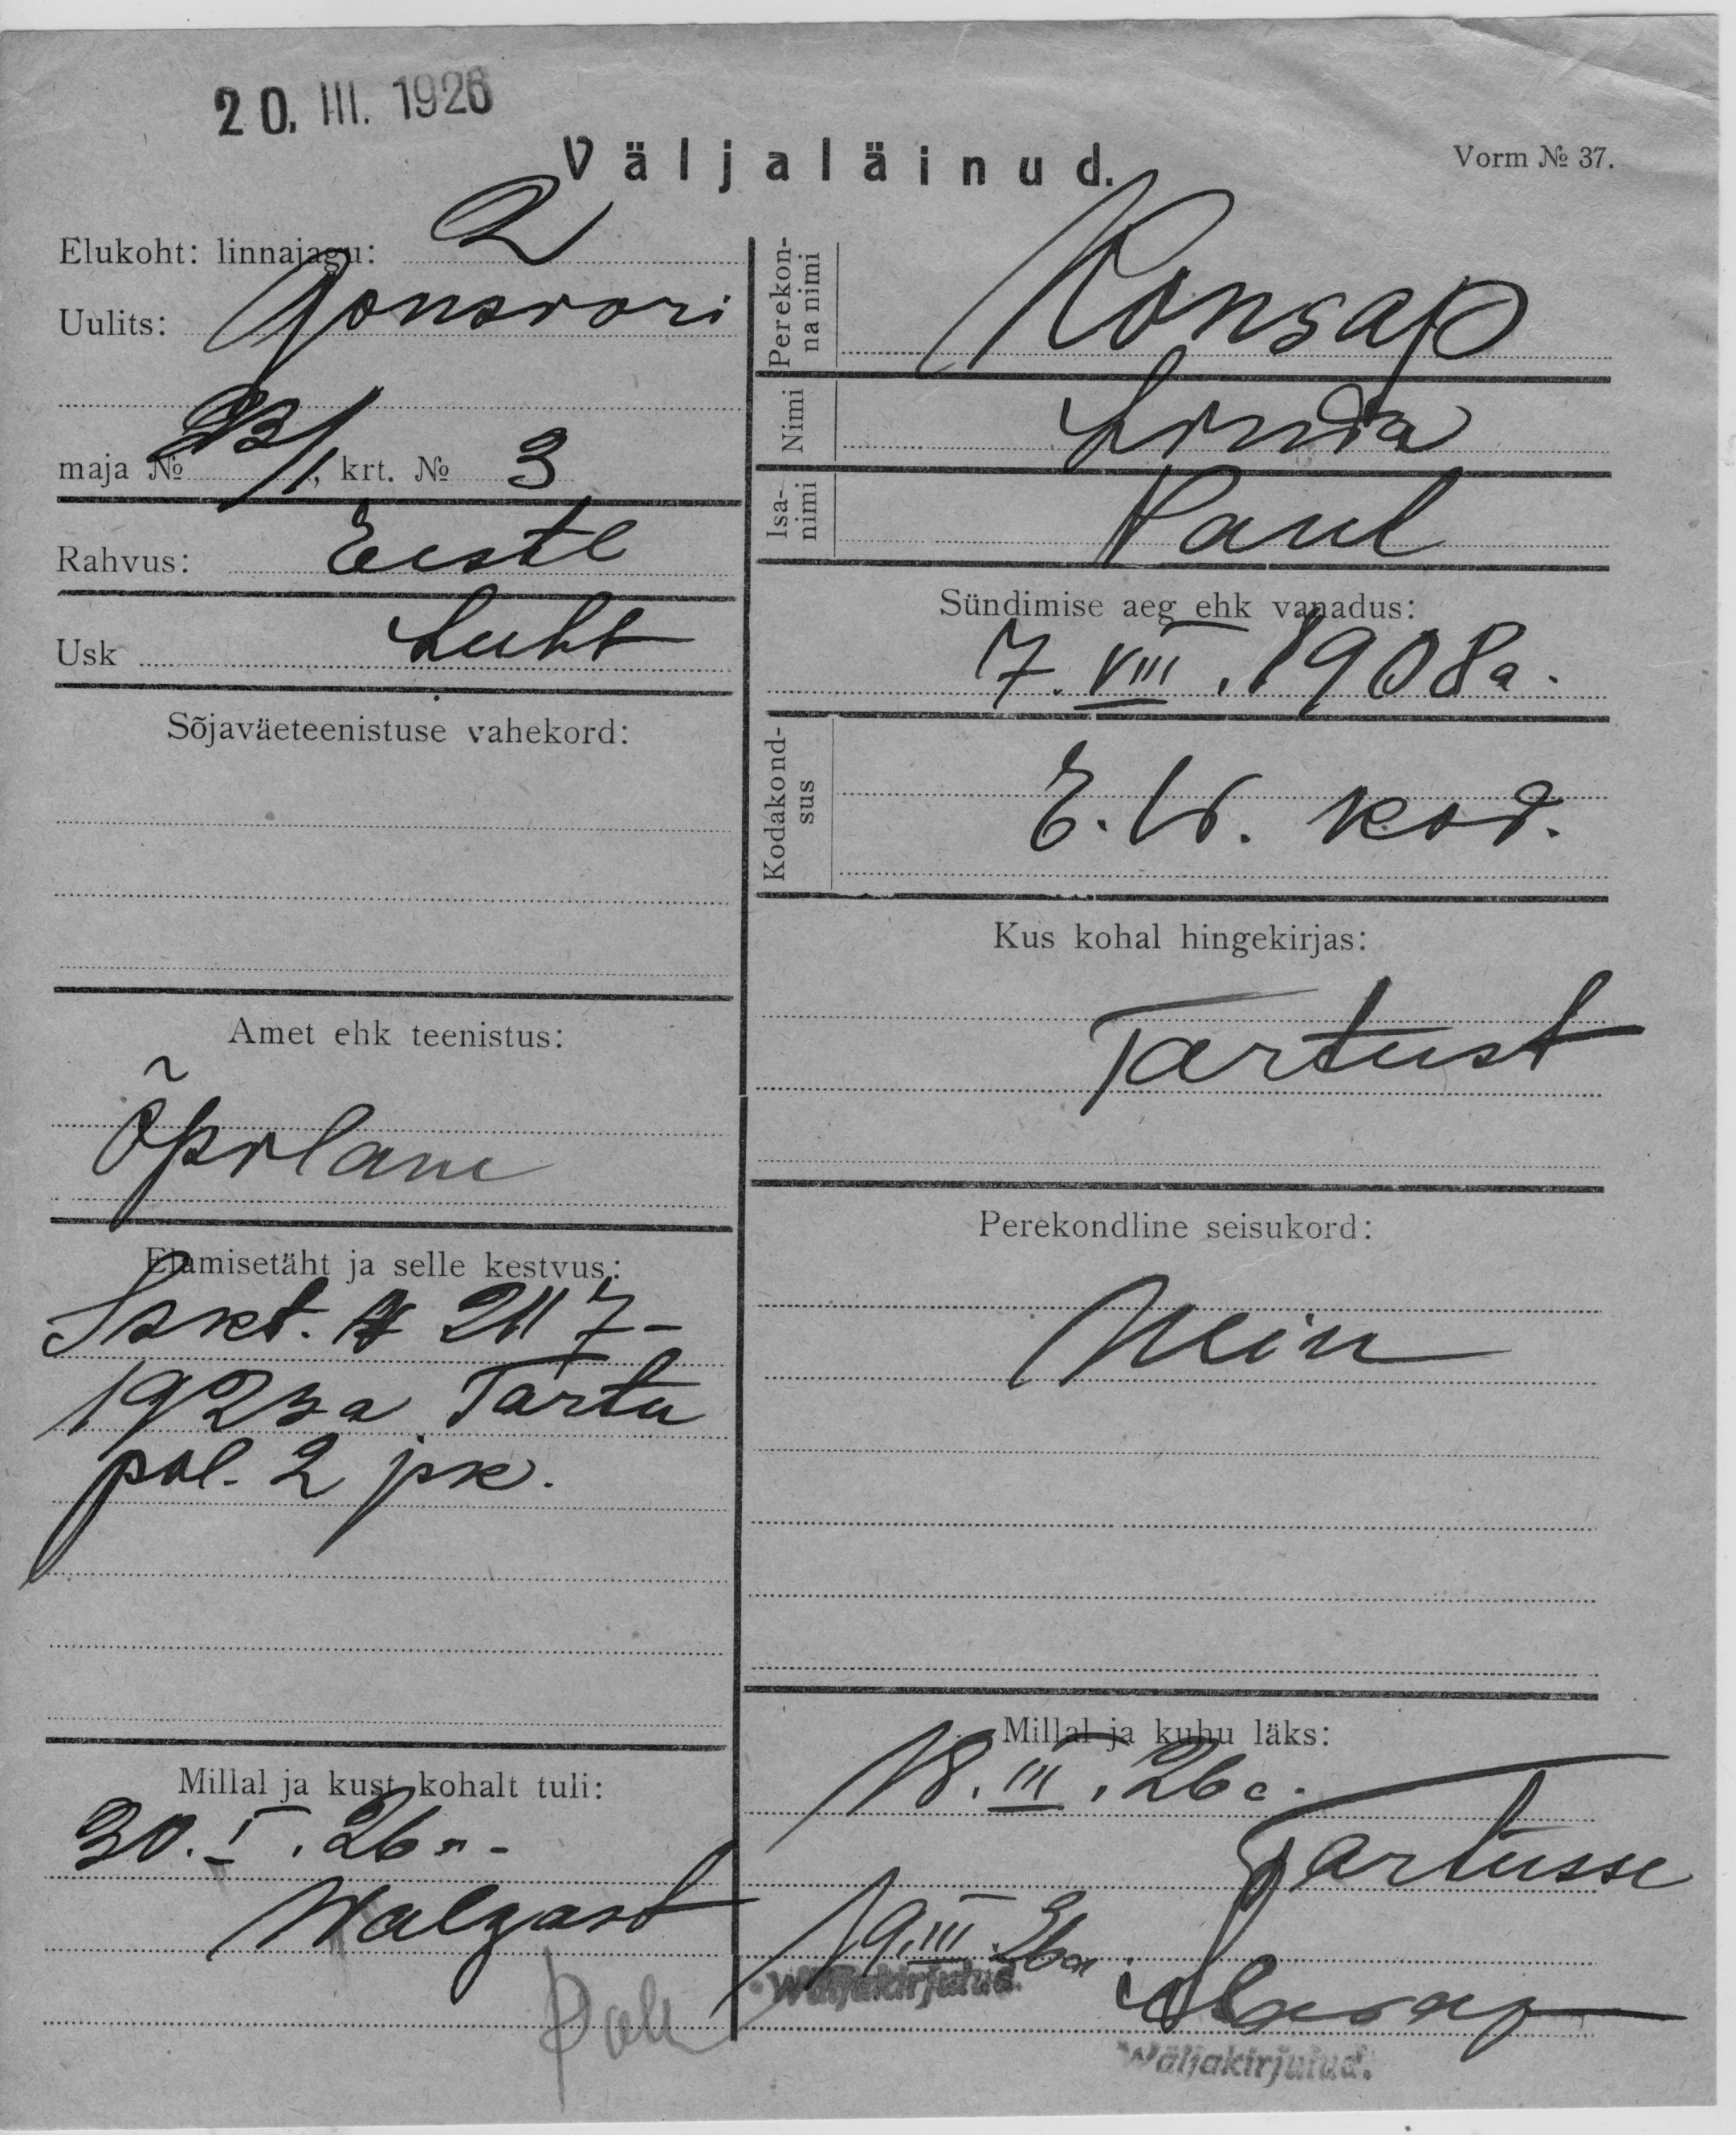 20. III. 1926
Väljaläinud.
Vorm № 37.
Elukoht: linnajagu: 2
Uulits: Gonsiori
maja № 23/1, krt. № 3
Rahvus: Eesti
Usk Luht
Sõjaväeteenistuse vahekord:
Amet ehk teenistus:
Õpilane
Elamisetäht ja selle kestvus:
Isikt. № 2117-
1923a Tartu
pol. 2 jsk.
Millal ja kust kohalt tuli:
30. I. 26a.
Walgast
Perekonna nimi Konsap
Nimi Linda
Isanimi Paul
Sündimise aeg ehk vanadus:
7. VIII. 1908a.
Kodakondsus E. W. kod.
Kus kohal hingekirjas:
Tartust
Perekondline seisukord:
Nein
Millal ja kuhu läks:
18. III. 26a.
Tartusse
19. III 26a
Wäljakirjutud.
Wäljakirjutud.